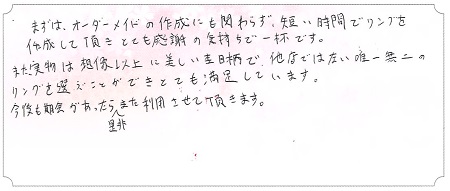 まずは、オーダーメイドの作成にも関わらず、短い時間でリングを
作成して頂きとても感謝の気持ちで一杯です。
また実物は想像以上に美しい木目柄で、他店ではない唯一無二の
リングを選ぶことができとても満足しています。
今後も機会があったら是非また利用させて頂きます。